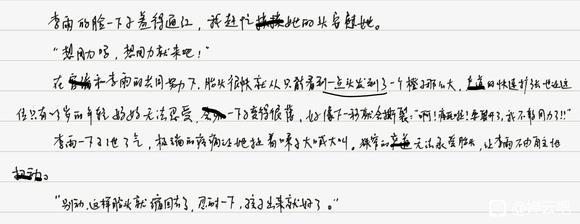 李雨的脸一下子羞得通红，我赶忙她的头安慰她。
“想用力吗，想用力就来吧！”
在和李雨的共同努力下，胎头很快就从只能看到一点头发到了一个橙子那么大，的快速扩张也让这
位只有岁的年轻妈妈无法忍受，一下子变得很紧，好像下一秒就会撕裂：“啊！疼死啦！要裂开了，我不能用力了！！”
李雨一下子泄了气，极端的疼痛让她扯着嗓子大喊大叫。狭窄的无法承受胎头，让李雨不由自主地
扭动。
“别动，这样胎头就缩回去了，忍耐一下，孩子出来就好了。”